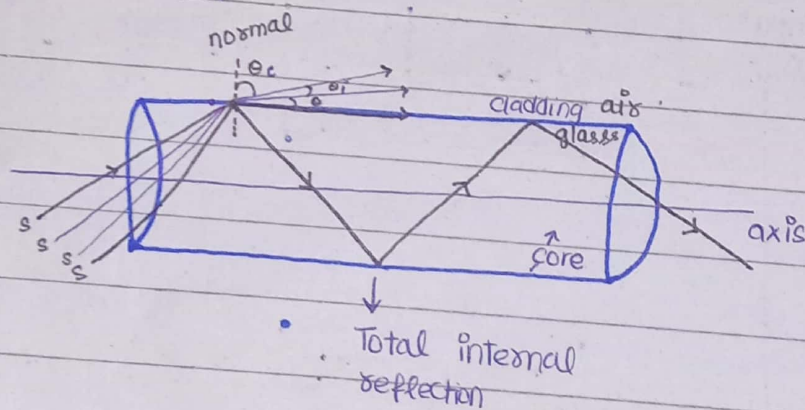 normal
θc
θi
θ
cladding air
glasss
s
s
s
s
axis
core
Total internal
reflection